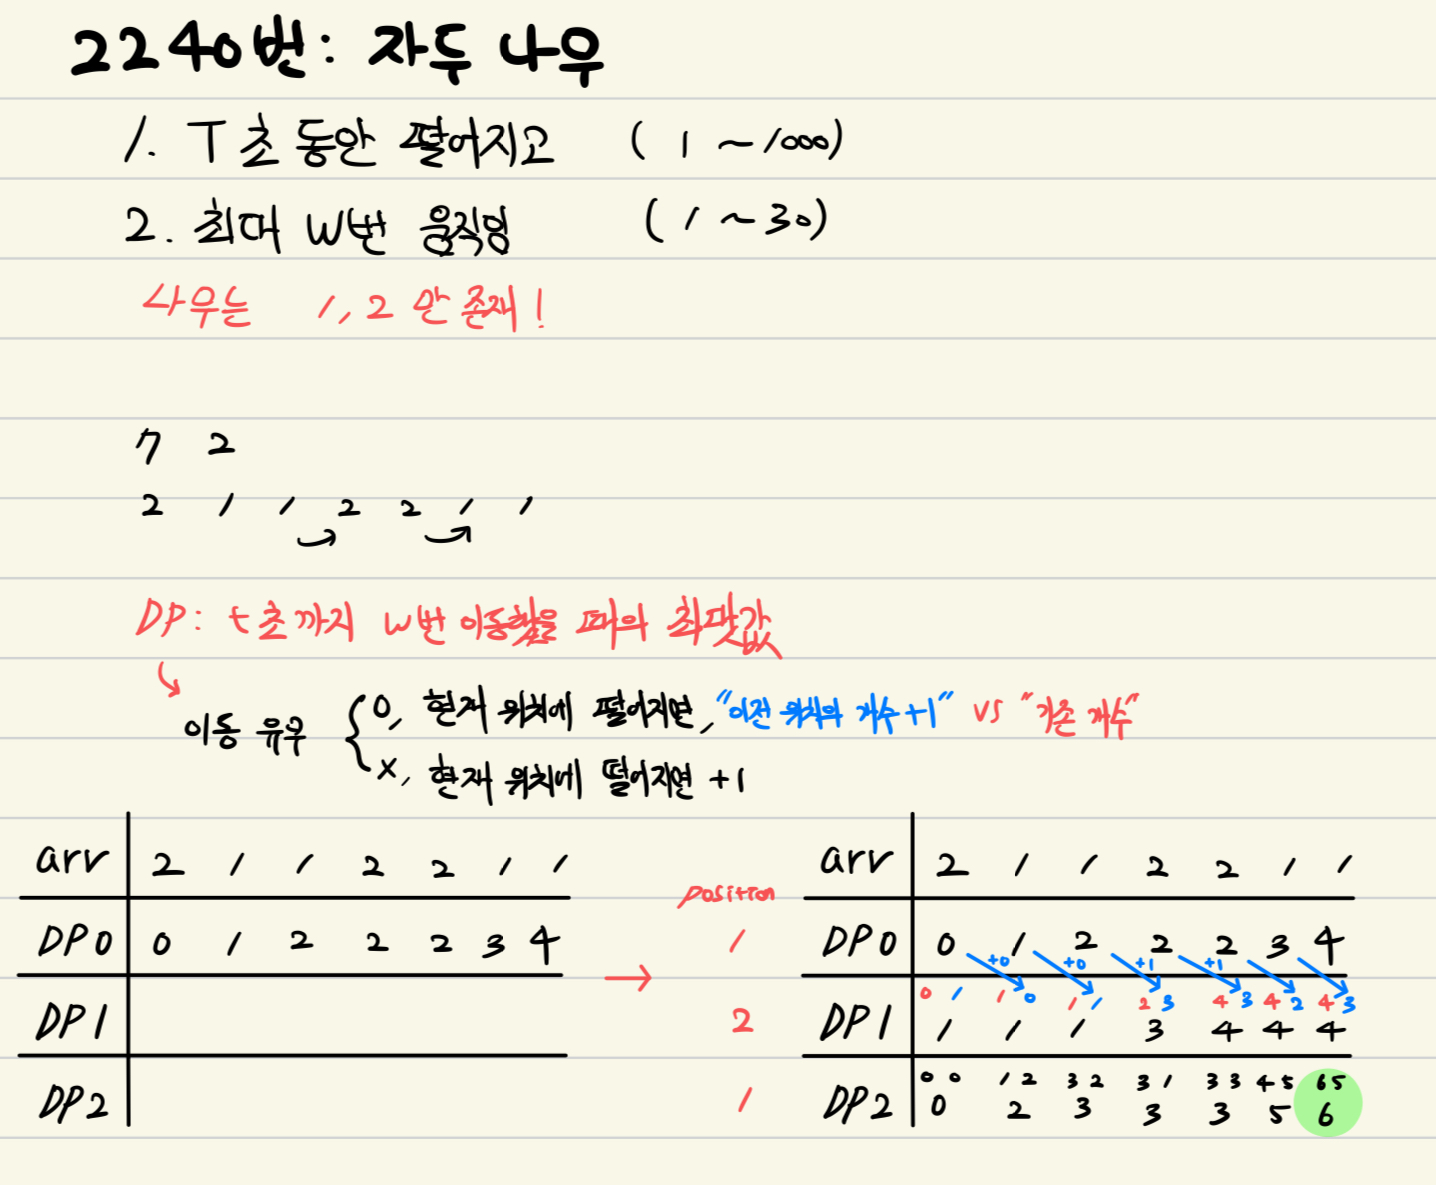 2240번: 자두 나무
1. T초 동안 떨어지고 (1 ~ 1000)
2. 최대 W번 움직임 (1 ~ 30)
나무는 1, 2 만 존재!
7 2
2 1 1 2 2 1 1
DP: t초까지 W번 이동했을 때의 최댓값
이동 유무
O, 현재 위치에 떨어지면, "이전 위치의 개수 +1" vs "기존 개수"
X, 현재 위치에 떨어지면 +1
arr 2 1 1 2 2 1 1
DP0 0 1 2 2 2 3 4
DP1
DP2
→
position
1
2
1
arr 2 1 1 2 2 1 1
DP0 0 1 2 2 2 3 4
+0 +0 +1 +1
0 1 1 0 1 1 2 3 4 3 4 2 4 3
DP1 1 1 1 3 4 4 4
0 0 1 2 3 2 3 1 3 3 4 5 6 5
DP2 0 2 3 3 3 5 6